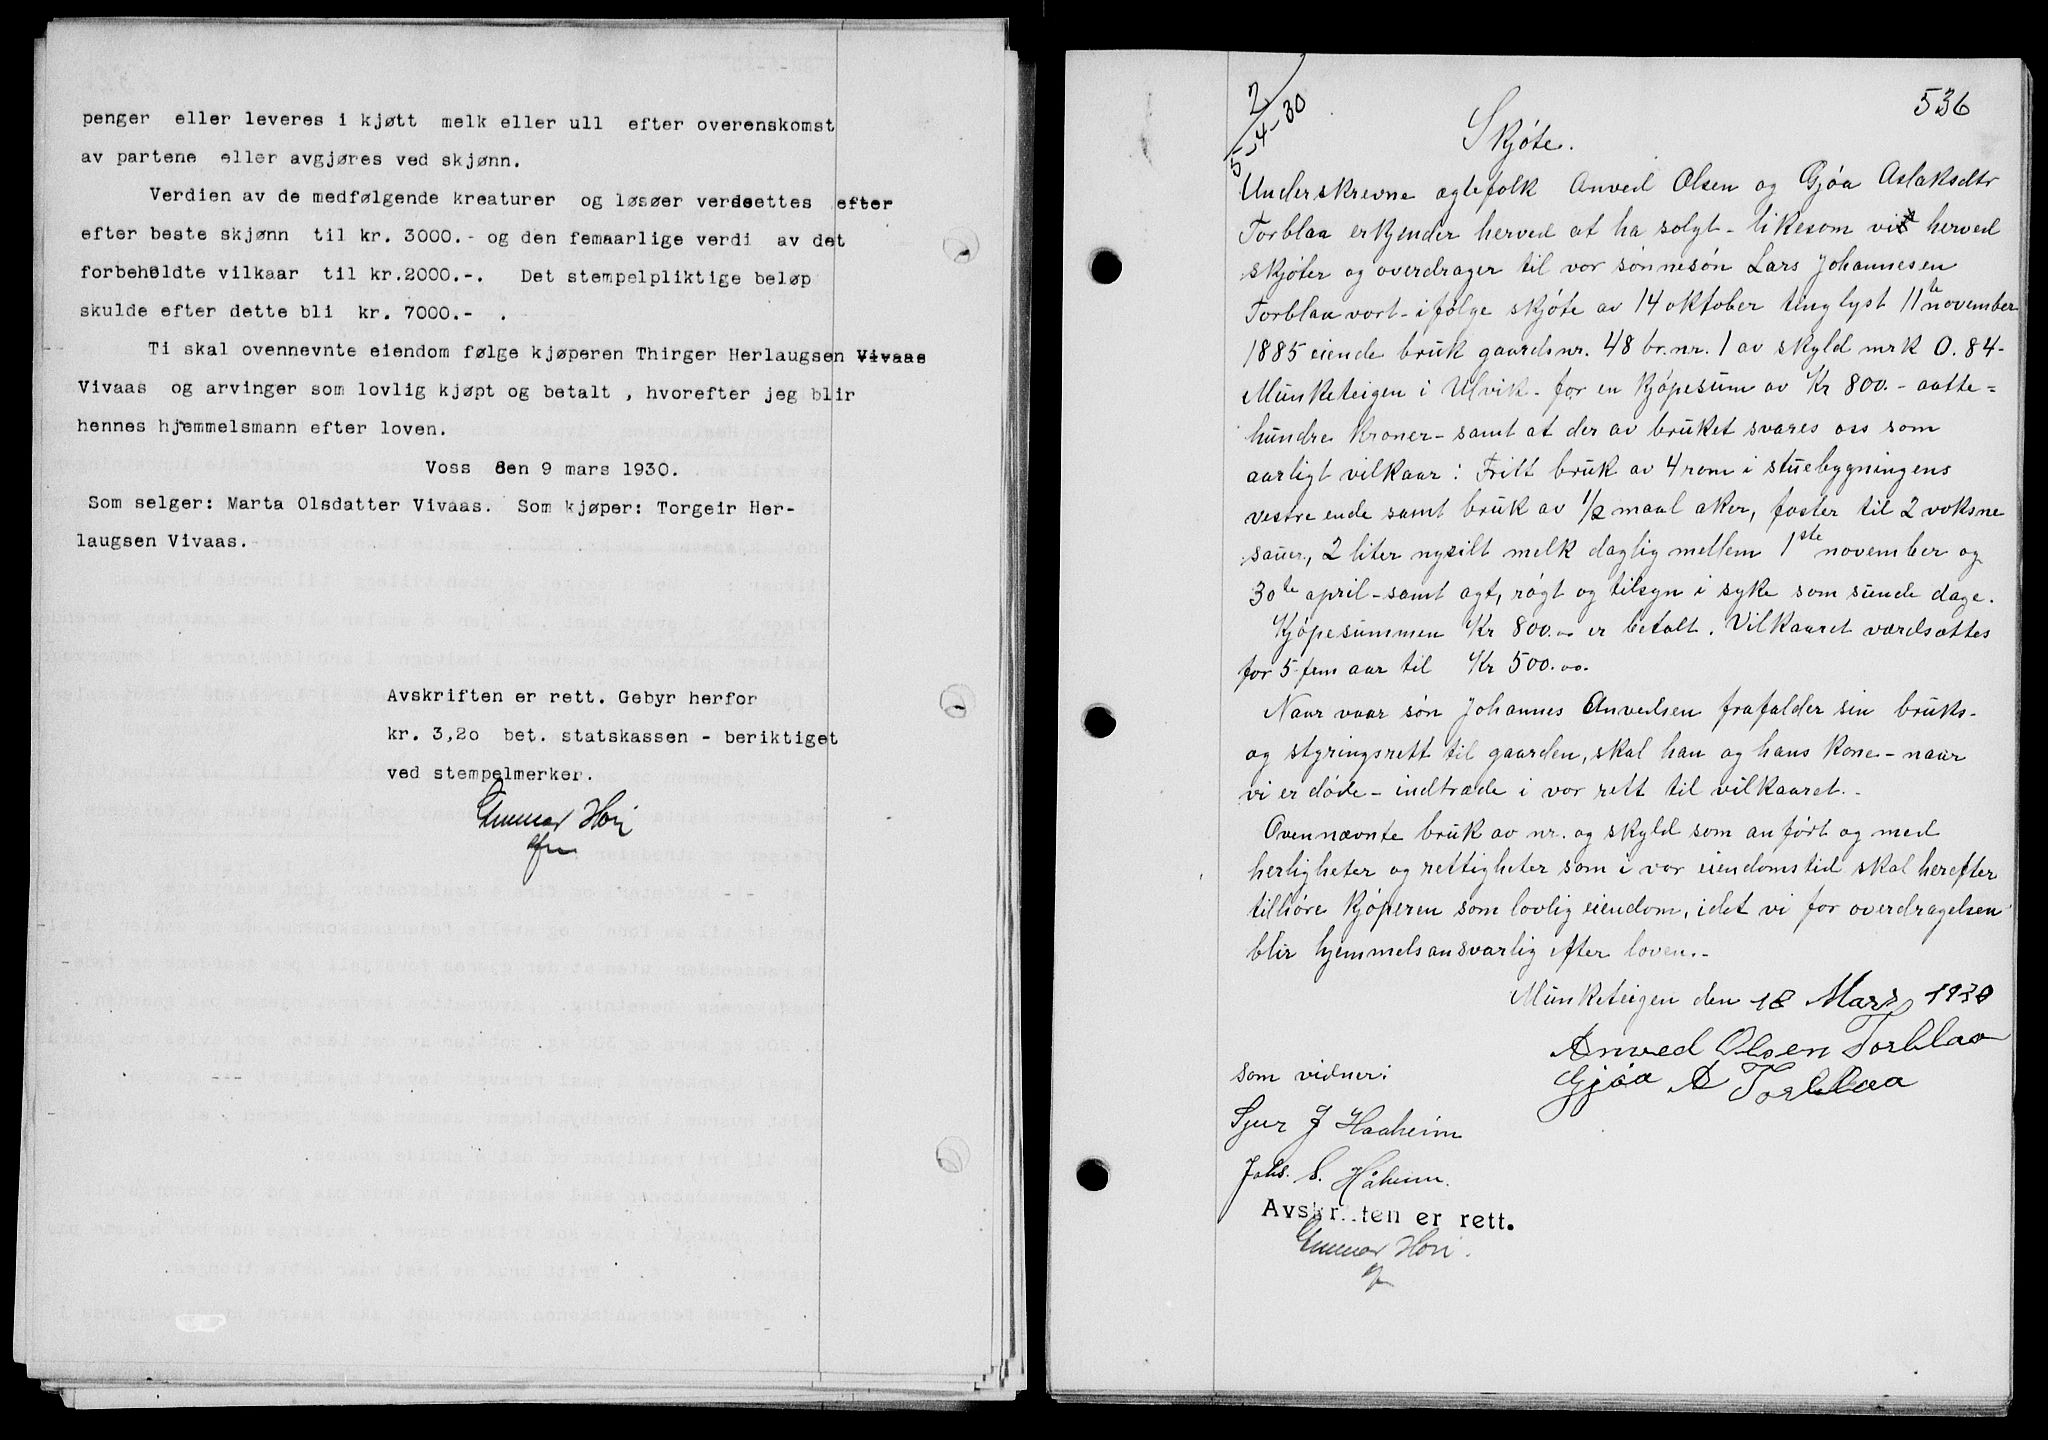 penger eller leveres i kjøtt melk eller ull efter overenskomst
av partene eller avgjøres ved skjønn.
Verdien av de medfølgende kreaturer og løsøer verdsettes efter
efter beste skjønn til kr. 3000.- og den femaarlige verdi av det
forbeholdte vilkaar til kr.2000.-. Det stempelpliktige beløp
skulde efter dette bli kr. 7000.- .
Ti skal ovennevnte eiendom følge kjøperen Thirger Herlaugsen Vivaas
Vivaas og arvinger som lovlig kjøpt og betalt , hvorefter jeg blir
hennes hjemmelsmann efter loven.
Voss den 9 mars 1930.
Som selger: Marta Olsdatter Vivaas. Som kjøper: Torgeir Her-
laugsen Vivaas.
Avskriften er rett. Gebyr herfor
kr. 3,20 bet. statskassen - beriktiget
ved stempelmerker.
Gunnar Hori
2/5-4-30
536
Skjøte.
Underskrevne egtefolk Anved Olsen og Gjøa Aslaksdtr
Torblaa erkjender herved at ha solgt - likesom vi herved
skjøter og overdrager til vor sønnesøn Lars Johannesen
Torblaa vort - ifølge skjøte av 14 oktober tinglyst 11te november
1885 eiende bruk gaardsnr. 48 br.nr. 1 av skyld mrk 0.84-
Munketeigen i Ulvik - for en kjøpesum av Kr 800.- aatte=
hundre kroner - samt at der av bruket svares oss som
aarligt vilkaar: Fritt bruk av 4 rom i stuebygningens
vestre ende samt bruk av 1/2 maal aker, foster til 2 voksne
sauer, 2 liter nysilt melk daglig mellem 1ste november og
30te april - samt agt, røgt og tilsyn i syke som sunde dage.
Kjøpesummen Kr 800.- er betalt. Vilkaaret værdsættes
for 5 fem aar til Kr 500.00.
Naar vaar søn Johannes Anvedsen frafalder sin bruks-
og styringsrett til gaarden, skal han og hans kone - naar
vi er døde - indtræde i vor rett til vilkaaret.-
Ovennævnte bruk av nr. og skyld som anført og med
herligheter og rettigheter som i vor eiendomstid skal herefter
tilhøre kjøperen som lovlig eiendom, idet vi for overdragelsen
blir hjemmelsansvarlig efter loven.-
Munketeigen den 18 Mars 1930
Anved Olsen Torblaa
Gjøa A Torblaa
som vidner:
Sjur J Haaheim
Johs. S. Håheim.
Avskr..ten er rett.
Gunnar Hori.